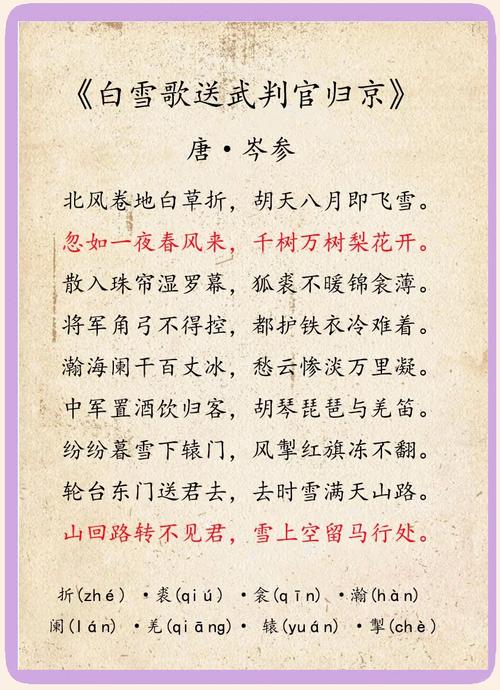 《白雪歌送武判官归京》
唐·岑参
北风卷地白草折，胡天八月即飞雪。
忽如一夜春风来，千树万树梨花开。
散入珠帘湿罗幕，狐裘不暖锦衾薄。
将军角弓不得控，都护铁衣冷难着。
瀚海阑干百丈冰，愁云惨淡万里凝。
中军置酒饮归客，胡琴琵琶与羌笛。
纷纷暮雪下辕门，风掣红旗冻不翻。
轮台东门送君去，去时雪满天山路。
山回路转不见君，雪上空留马行处。
折(zhé) ·裘(qiú) ·衾(qīn) ·瀚(hàn)
阑(lán) ·羌(qiāng)· 辕(yuán) ·掣(chè)